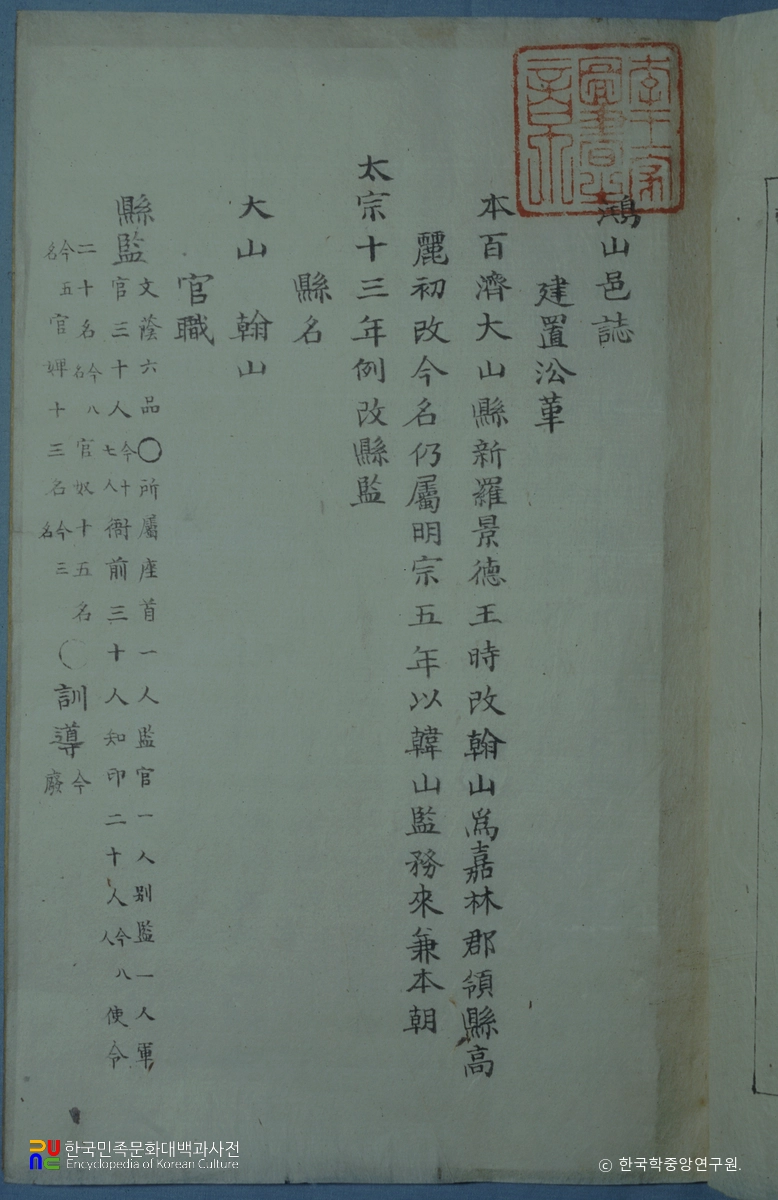 李王家圖書之章
鴻山邑誌
建置沿革
本百濟大山縣新羅景德王時改翰山爲嘉林郡領縣高
麗初改今名仍屬明宗五年以韓山監務來兼本朝
太宗十三年例改縣監
縣名
大山 翰山
官職
縣監 文蔭六品〇所屬座首一人監官一人別監一人軍
官三十人今十七人衙前三十人知印二十人今八人使令
二十名今八名官奴十五名
今五名官婢十三名今三名〇訓導今廢
한국민족문화대백과사전
Encyclopedia of Korean Culture
© 한국학중앙연구원.